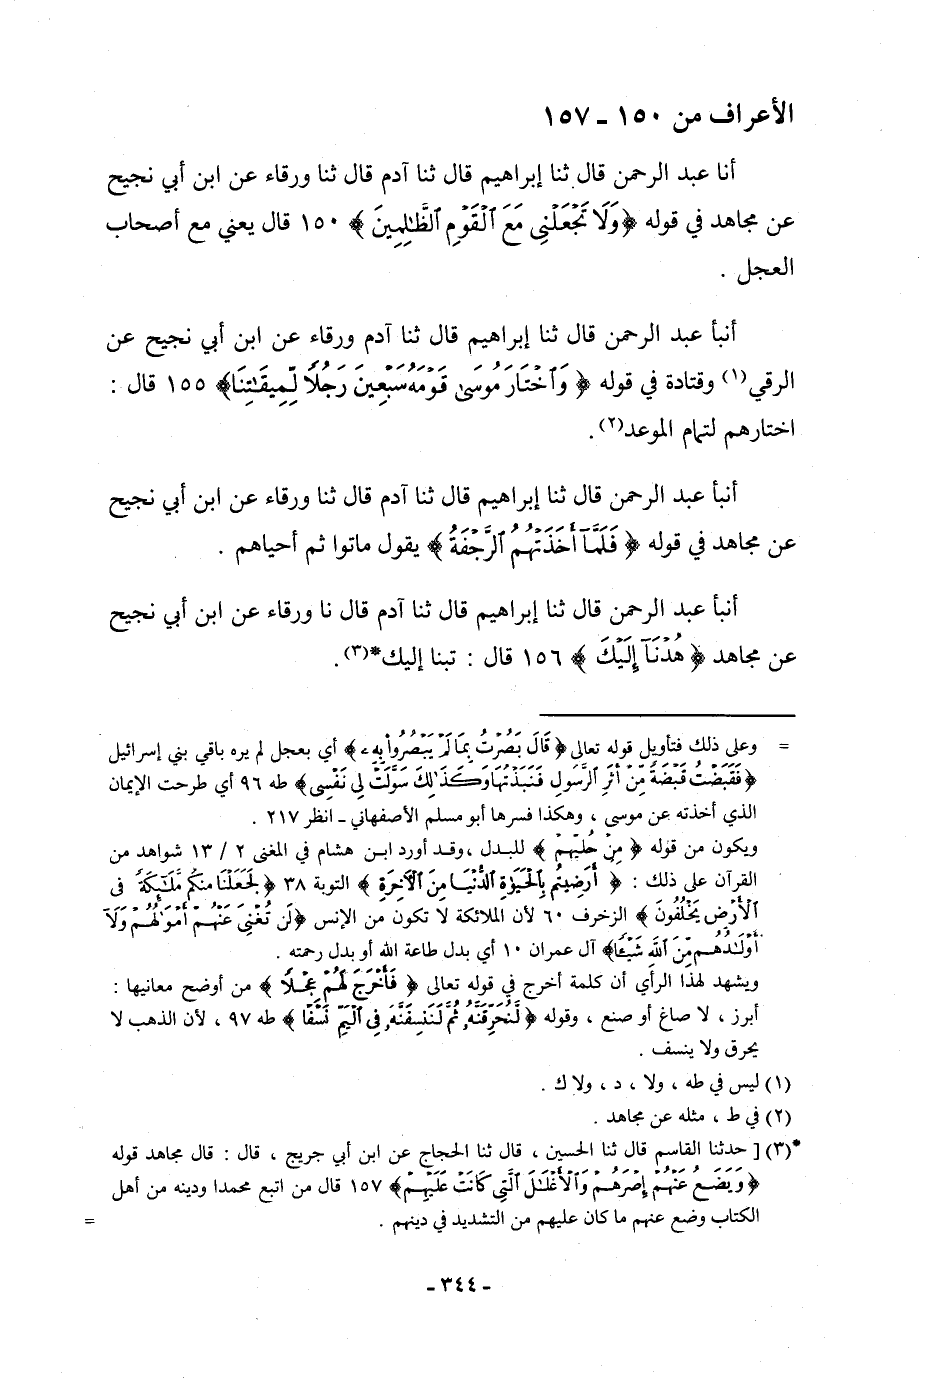 الأعراف من ١٥٠ ـ ١٥٧
أنا عبد الرحمن قال ثنا إبراهيم قال ثنا آدم قال ثنا ورقاء عن ابن أبي نجيح
عن مجاهد في قوله ﴿وَلَا تَجْعَلْنِي مَعَ ٱلْقَوْمِ ٱلظَّٰلِمِينَ﴾ ١٥٠ قال يعني مع أصحاب
العجل .
أنبأ عبد الرحمن قال ثنا إبراهيم قال ثنا آدم ورقاء عن ابن أبي نجيح عن
الرقي(١) وقتادة في قوله ﴿ وَٱخْتَارَ مُوسَىٰ قَوْمَهُۥ سَبْعِينَ رَجُلًا لِّمِيقَٰتِنَا﴾ ١٥٥ قال :
اختارهم لتمام الموعد(٢).
أنبأ عبد الرحمن قال ثنا إبراهيم قال ثنا آدم قال ثنا ورقاء عن ابن أبي نجيح
عن مجاهد في قوله ﴿ فَلَمَّآ أَخَذَتْهُمُ ٱلرَّجْفَةُ ﴾ يقول ماتوا ثم أحياهم .
أنبأ عبد الرحمن قال ثنا إبراهيم قال ثنا آدم قال نا ورقاء عن ابن أبي نجيح
عن مجاهد ﴿ هُدْنَآ إِلَيْكَ ﴾ ١٥٦ قال : تبنا إليك*(٣).
= وعلى ذلك فتأويل قوله تعالى ﴿ قَالَ بَصُرْتُ بِمَا لَمْ يَبْصُرُوا۟ بِهِۦ ﴾ أي بعجل لم يره باقي بني إسرائيل
﴿فَقَبَضْتُ قَبْضَةً مِّنْ أَثَرِ ٱلرَّسُولِ فَنَبَذْتُهَا وَكَذَٰلِكَ سَوَّلَتْ لِي نَفْسِي﴾ طه ٩٦ أي طرحت الإيمان
الذي أخذته عن موسى ، وهكذا فسرها أبو مسلم الأصفهاني ـ انظر ٢١٧ .
ويكون من قوله ﴿ مِنْ حُلِيِّهِمْ ﴾ للبدل ،وقد أورد ابن هشام في المغنى ٢ / ١٣ شواهد من
القرآن على ذلك : ﴿ أَرَضِيتُم بِٱلْحَيَوٰةِ ٱلدُّنْيَا مِنَ ٱلْآخِرَةِ ﴾ التوبة ٣٨ ﴿لَجَعَلْنَا مِنكُم مَّلَٰٓئِكَةً فِى
ٱلْأَرْضِ يَخْلُفُونَ ﴾ الزخرف ٦٠ لأن الملائكة لا تكون من الإنس ﴿لَن تُغْنِىَ عَنْهُمْ أَمْوَٰلُهُمْ وَلَآ
أَوْلَٰدُهُم مِّنَ ٱللَّهِ شَيْـًٔا﴾ آل عمران ١٠ أي بدل طاعة الله أو بدل رحمته .
ويشهد لهذا الرأي أن كلمة أخرج في قوله تعالى ﴿ فَأَخْرَجَ لَهُمْ عِجْلًا ﴾ من أوضح معانيها :
أبرز ، لا صاغ أو صنع ، وقوله ﴿ لَّنُحَرِّقَنَّهُۥ ثُمَّ لَنَنسِفَنَّهُۥ فِى ٱلْيَمِّ نَسْفًا ﴾ طه ٩٧ ، لأن الذهب لا
يحرق ولا ينسف .
(١) ليس في طه ، ولا ، د ، ولا ك .
(٢) في ط ، مثله عن مجاهد .
*(٣) [ حدثنا القاسم قال ثنا الحسين ، قال ثنا الحجاج عن ابن أبي جريج ، قال : قال مجاهد قوله
﴿ وَيَضَعُ عَنْهُمْ إِصْرَهُمْ وَٱلْأَغْلَٰلَ ٱلَّتِى كَانَتْ عَلَيْهِمْ﴾ ١٥٧ قال من اتبع محمدا ودينه من أهل
الكتاب وضع عنهم ما كان عليهم من التشديد في دينهم . =
ـ ٣٤٤ ـ